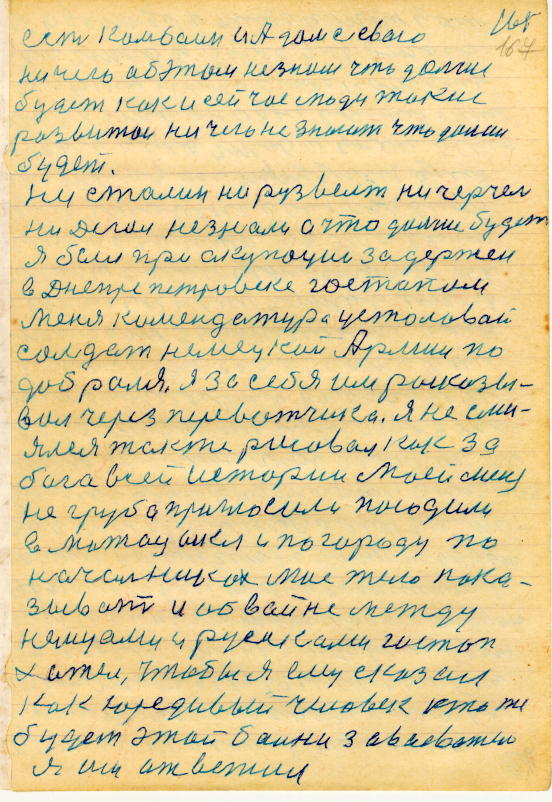 167
ест комбаин и А домсевого
ничего обэтом незнаю что долше
будет как и сей час люди такие
развитои ничего не знают что далши
будет.
ни сталин ни рузвелт ни черчел
ни Дегол незнали а что долше будет
я был при окупоции задержен
в Днепре петровске гостапом
меня комендатура устоловой
солдат немецкой Армии по
добрала. я за себя им росказы-
вал через перевотчика. я не сми-
ялся также рисовал как за
бога всей истории моей меня
не груба приглосили посодили
в матоцыкл и погороду по
начальникох мое тело пока-
зывать и об вайне между
немцами и руссками гостоп
хотел, чтобы я ему сказал
как юредивый человек кто же
будет этой байни заваеватель
я им ответил